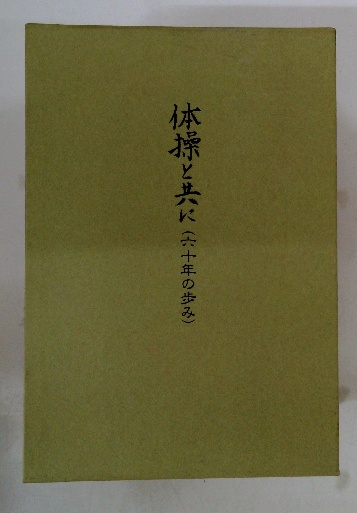 体操と共に(六十年の歩み)